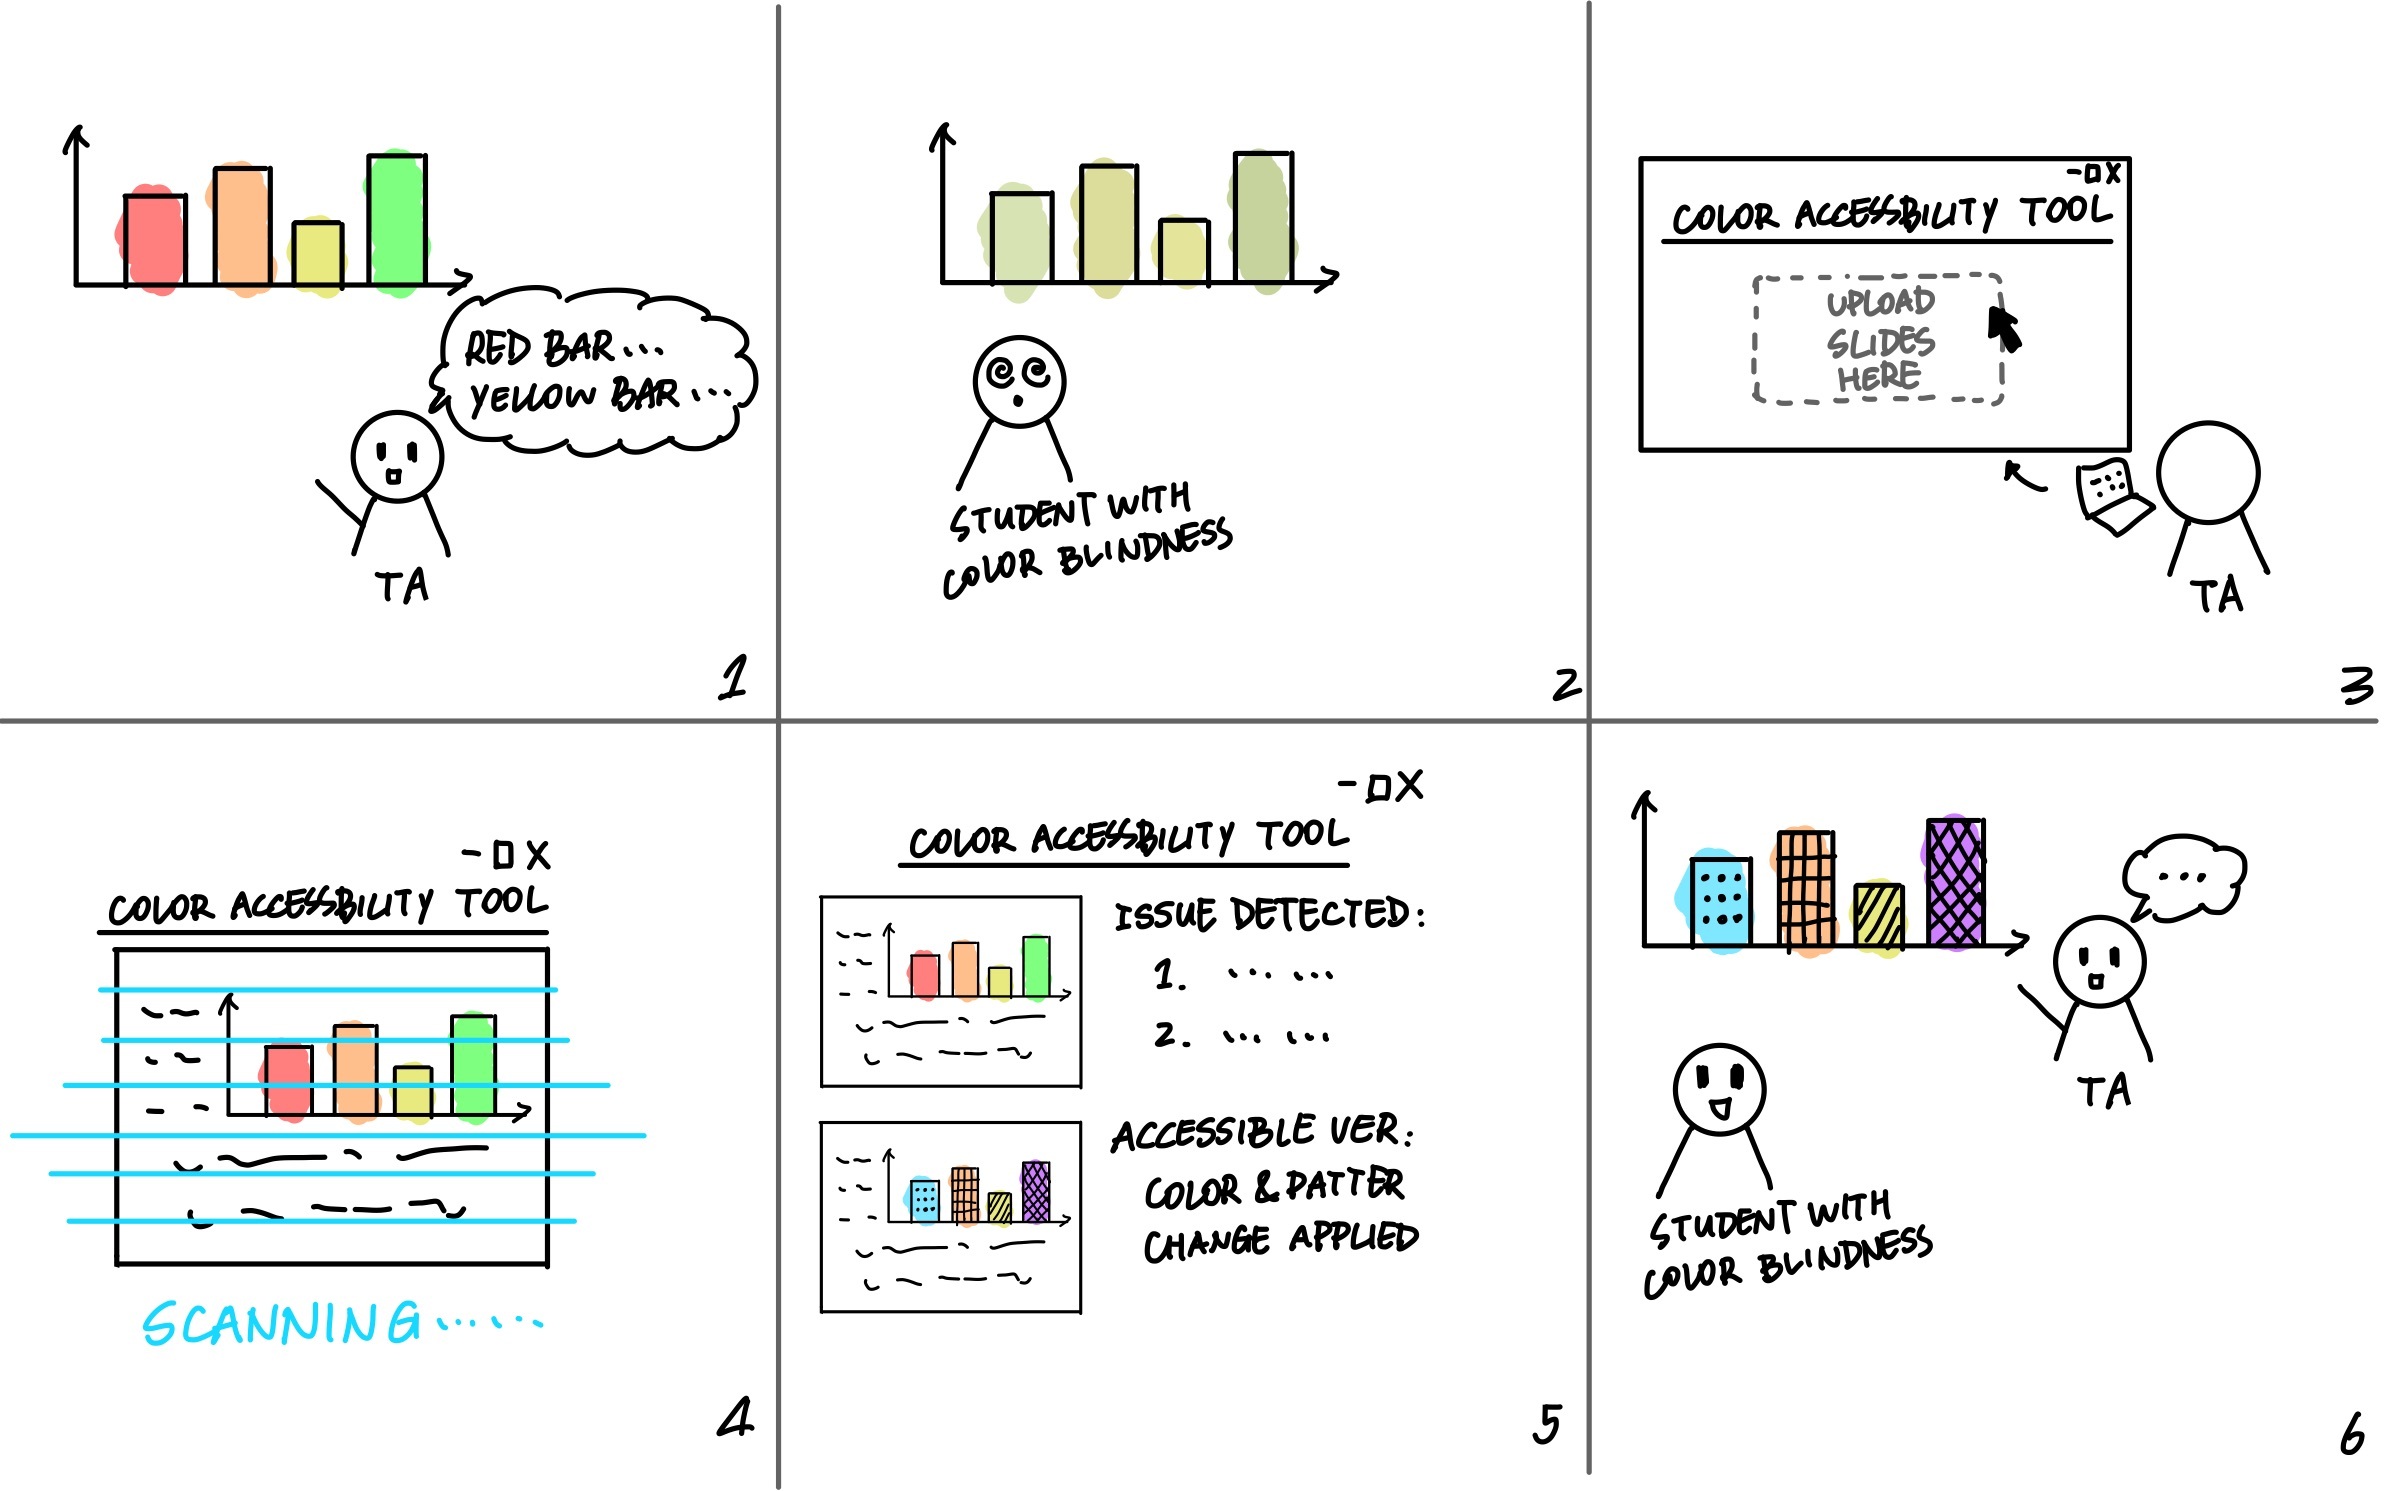 RED BAR...
YELLOW BAR...
TA
1
STUDENT WITH
COLOR BLINDNESS
2
- □ X
COLOR ACCESSBILITY TOOL
UPLOAD
SLIDES
HERE
TA
3
- □ X
COLOR ACCESSBILITY TOOL
SCANNING......
4
- □ X
COLOR ACCESSBILITY TOOL
ISSUE DETECTED:
1. ... ...
2. ... ...
ACCESSIBLE VER:
COLOR & PATTER
CHANGE APPLIED
5
...
TA
STUDENT WITH
COLOR BLINDNESS
6